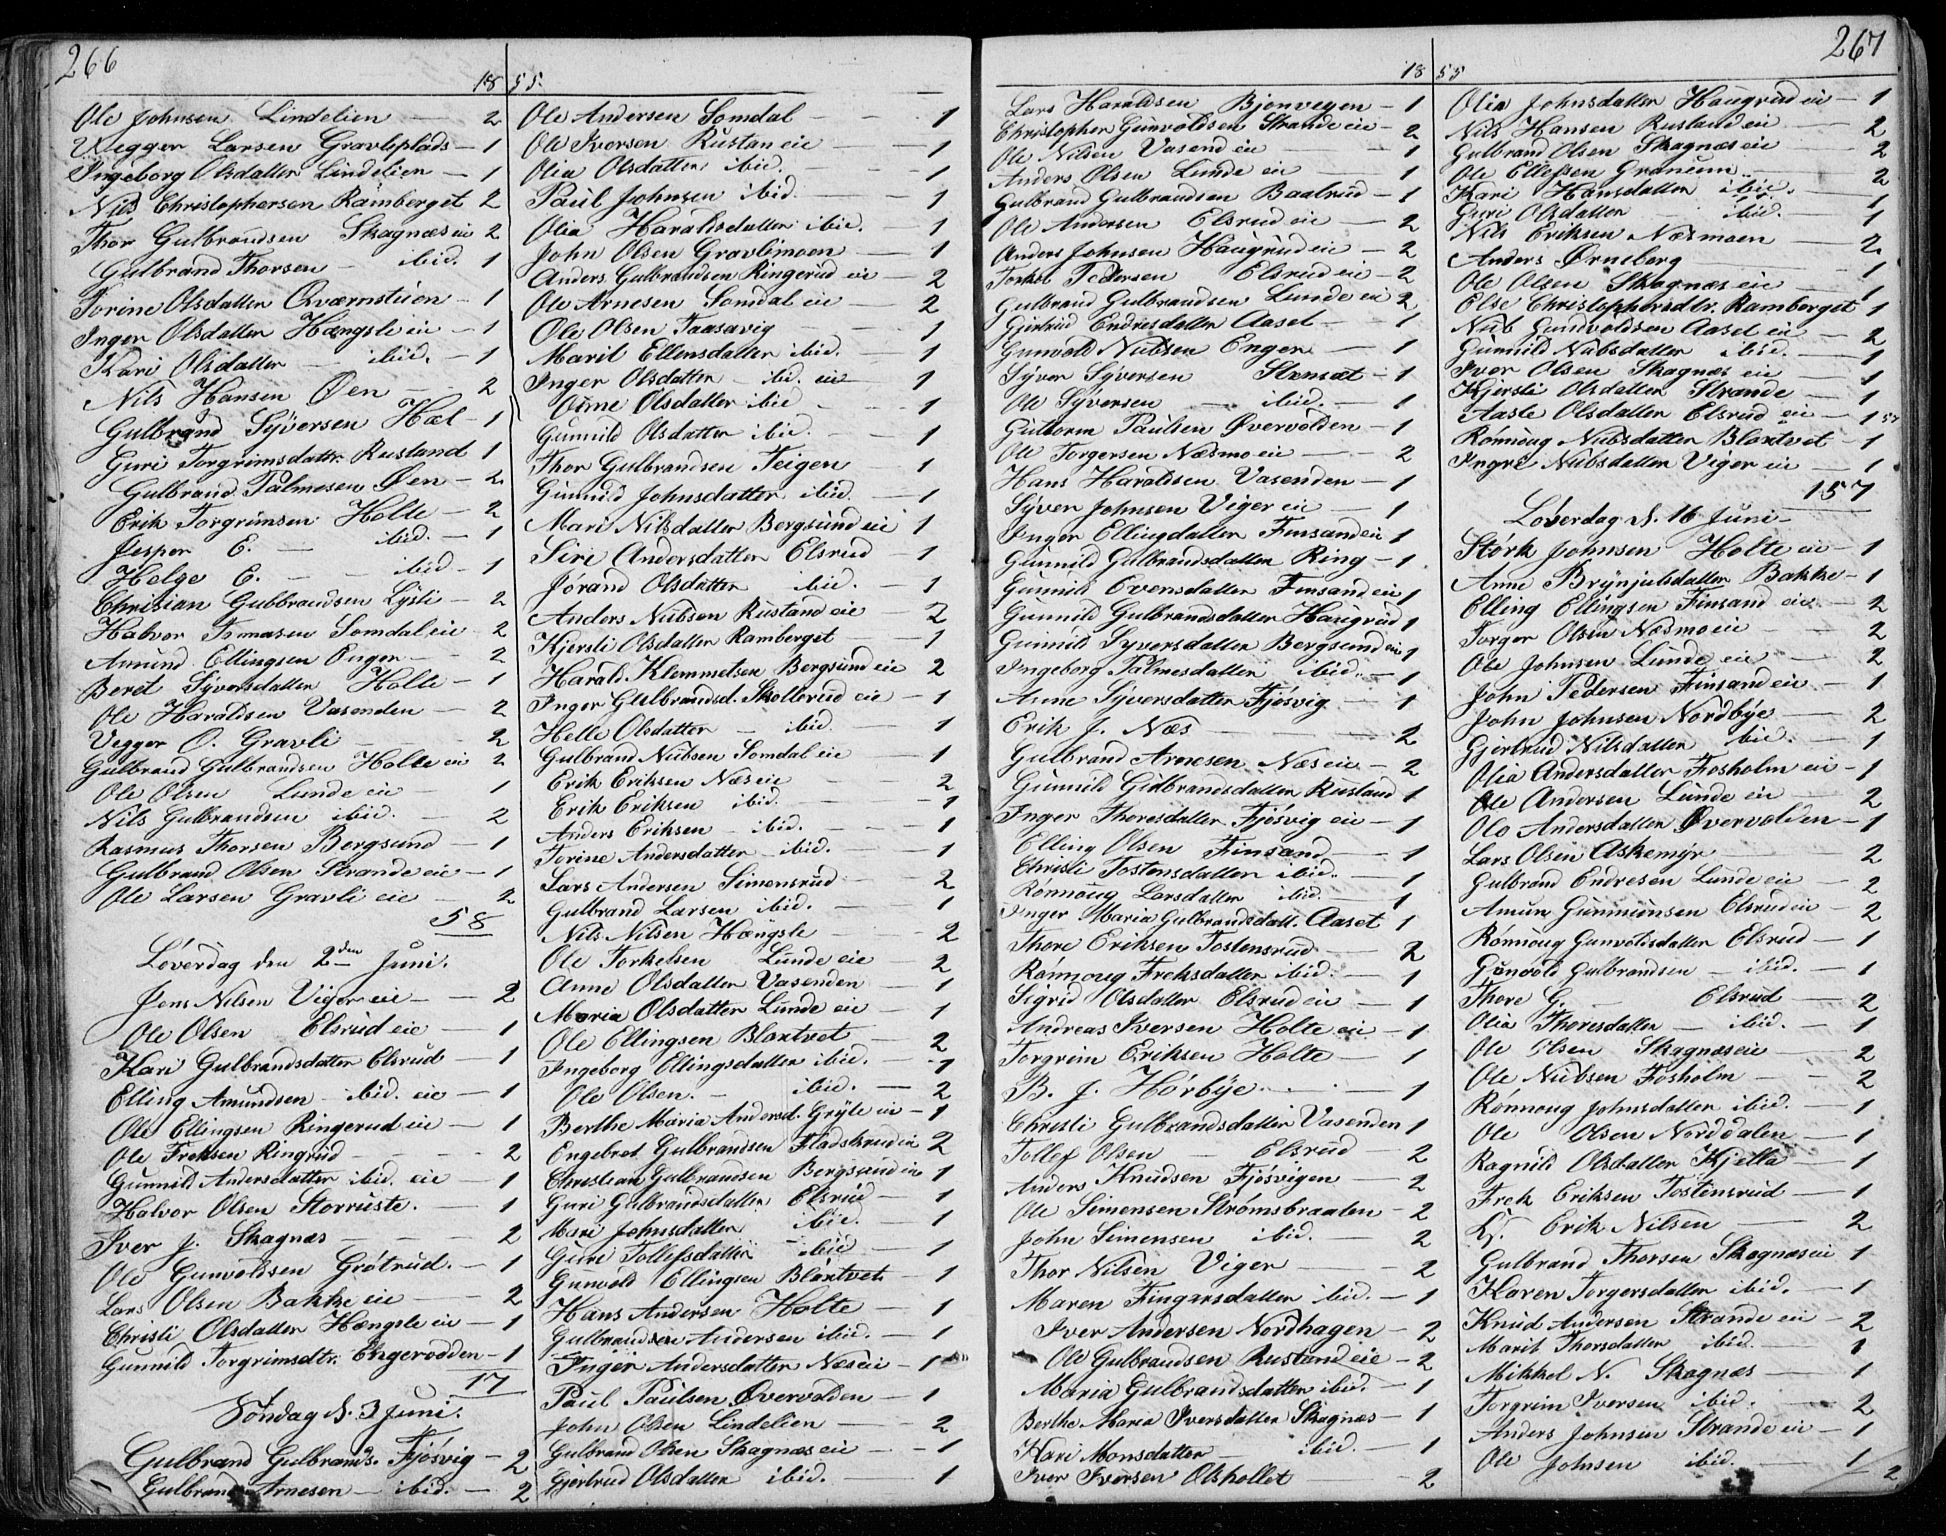 266
18 55.
Ole Johnsen Lindelien — 2
Vegger Larsen Gravliplads — 1
Ingeborg Olsdatter Lindelien — 1
Nils Christophersen Ramberget 2
Thor Gulbrandsen Skagnæs eie 2
Gulbrand Thorsen — ibid. 1
Torine Olsdatter Qværnstuen — 1
Inger Olsdatter Hængsle eie — 1
Kari Olsdatter — ibid. — 1
Nils Hansen Øen — 2
Gulbrand Syversen Hæl — 1
Guri Torgrimsdattr. Rustand 1
Gulbrand Palmesen Øen — 2
Erik Torgrimsen Holte — 2
Jesper E. — ibid. — 1
Helge E. — ibid — 1
Christian Gulbrandsen Lysli — 2
Halvor Tomasen Somdal eie — 2
Amund Ellingsen Enger — 2
Beret Syversdatter Holte — 1
Ole Haraldsen Vasenden — 2
Vegger O. Gravli — 2
Gulbrand Gulbrandsen Holte eie 2
Ole Olsen Lunde eie — 1
Nils Gulbrandsen ibid. — 2
Rasmus Thorsen Bergsund — 1
Gulbrand Olsen Strande eie — 1
Ole Larsen Gravli eie — 2
58
Løverdag den 2den Juni.
Jens Nilsen Viger eie — 2
Ole Olsen Elsrud eie — 1
Kari Gulbrandsdatter Elsrud — 1
Elling Amundsen — ibid. eie — 1
Ole Ellingsen Ringerud eie — 1
Ole Freksen Ringrud — 2
Gunnild Andersdatter ibid. eie — 1
Halvor Olsen Storruste. — 1
Iver J. Skagnæs — 2
Ole Gunvoldsen Grøtrud. — 1
Lars Olsen Bakke eie — 2
Christi Olsdatter Hængsle eie — 1
Gunnild Torgrimsdtr. Engerodden — 1
17
Søndag d. 3 Juni.
Gulbrand Gulbrands. Fjøsvig — 2
Gulbrand Arnesen — ibid. — 2
Ole Andersen Somdal — 1
Ole Iversen Rustan eie — 1
Olia Olsdatter ibid. — 1
Paul Johnsen ibid. — 1
Olia Haraldsdatter ibid. — 1
John Olsen Gravlimoen — 1
Anders Gulbrandsen Ringerud eie 2
Ole Arnesen Somdal eie — 2
Ole Olsen Taasavig — 1
Marit Ellensdatter ibid. — 1
Inger Olsdatter — ibd. eie 1
Olsdatter ibid — 1
Gunnild Olsdatter ibid. — 1
Thor Gulbrandsen Teigen 1
Gunnild Johnsdatter ibid. — 1
Mari Nilsdatter Bergsund eie 1
Siri Andersdatter Elsrud — 1
Jørand Olsdatter ibid. — 1
Anders Nubsen Rustand eie 2
Kjersti Olsdatter Ramberget — 1
Harald Klemmetsen Bergsund eie 2
Inger Gulbrandsd. Skollerud eie — 1
Helle Olsdatter — ibid. 1
Gulbrand Nubsen Somdal eie — 1
Erik Eriksen Næs eie — 2
Erik Eriksen ibid. — 1
Anders Eriksen — ibid. — 1
Torine Andersdatter — ibid. — 1
Lars Andersen Simensrud — 2
Gulbrand Larsen ibid. — 1
Nils Nilsen Hængsle — 2
Ole Torkelsen Lunde eie — 2
Anne Olsdatter Vasenden — 1
Maria Olsdatter Lunde eie — 1
Ole Ellingsen Blaxtvet — 2
Ingeborg Ellingsdatter ibid. — 1
Ole Olsen. — ibid. — 2
Berthe Maria Andersd. Gryte eie — 1
Engebret Gulbrandsen Fladsrud eie 2
Christian Gulbrandsen Bergsund eie 1
Guri Gulbrandsdatter Elsrud — 1
Mari Johnsdatter ibid. — 1
Guri Tollefsdatter — ibid — 1
Gunvold Ellingsen Blaxtvet — 1
Hans Andersen Holte — 1
Gulbrandsen Andersen ibid. — 1
Inger Andersdatter Næs eie — 1
Paul Paulsen Øvervolden — 1
John Olsen Lindelien — 2
Gulbrand Olsen Skagnæs eie — 1
Gjertrud Olsdatter ibid. 1
267
18 55
Lars Haraldsen Bjonvegen — 1
Christopher Gunvoldsen Strande eie — 2
Ole Nilsen Vasend eie 1
Anders Olsen Lunde eie — 1
Gulbrand Gulbrandsen Baalrud — 1
Ole Andersen Elsrud eie — 2
Anders Johnsen Haugrud eie — 2
Torkel Pedersen Elsrud eie — 2
Gulbrand Gulbrandsen Lunde eie 2
Gjertrud Endresdatter Aaset — 1
Gunvold Nubsen Enger — 1
Syver Syversen Stensæt — 1
Ole Syversen — ibid. — 1
Guttorm Paulsen Øvervolden — 1
Ole Torgersen Næsmo eie — 2
Hans Haraldsen Vasenden — 1
Syver Johnsen Viger eie — 1
Inger Ellingdatter Finsand eie 1
Gunnild Gulbrandsdatter Ring — 1
Gunnild Evensdatter Finsand eie 1
Gunnild Gulbrandsdatter Haugrud 1
Gunnild Syversdatter Bergsund eie 1
Ingeborg Palmesdatter ibid. — 1
Anne Syversdatter Fjøsvig — 1
Erik J. Næs — 2
Gulbrand Arnesen Næs eie — 2
Gunnild Gulbrandsdatter Rustand 1
Inger Thoresdatter Fjøsvig eie — 1
Elling Olsen Finsand — 1
Christi Tostensdatter ibid. — 1
Rønnoug Larsdatter ibid. — 1
Inger Maria Gulbrandsdatt. Aaset 1
Thore Eriksen Tostensrud — 2
Rønnoug Freksdatter ibid. — 1
Sigrid Olsdatter Elsrud eie — 1
Andreas Iversen Holte eie — 1
Torgrim Eriksen Holte — 1
B. J. Hørbye. — 1
Christi Gulbrandsdatter Vasenden 1
Tollef Olsen — Elsrud — 2
Anders Knudsen Fjøsvigen — 2
Ole Simensen Strømsbraaten — 2
John Simensen ibid. 2
Thor Nilsen Viger — 2
Maren Fingarsdatter ibid. — 1
Iver Andersen Nordhagen — 2
Ole Gulbrandsen Rustand eie — 2
Maria Gulbrandsdatter ibid. — 1
Berthe Maria Iversdatter Skagnæs — 1
Kari Monsdatter — ibid. — 1
Iver Iversen Olshollet — 2
Olia Johnsdatter Haugrud eie — 1
Nils Hansen Rustand eie — 2
Gulbrand Olsen Skagnæs eie — 2
Ole Ellefsen Granum — 2
Kari Hansdatter ibid. — 1
Guri Olsdatter — ibid. — 1
Nils Eriksen Næsmoen — 2
Anders Ørneberg — 1
Ole Olsen Skagnæs eie — 1
Else Christophersdtr. Ramberget 1
Nub Gundvoldsen Aaset eie — 2
Gunnild Nubsdatter ibid. — 1
Iver Olsen Skagnæs eie — 1
Kjersti Olsdatter Strande — 1
Aaste Olsdatter Elsrud eie — 1 57
Rønnoug Nubsdatter Blaxtvet — 1
Ingri Nubsdatter Viger eie — 1
157
Løverdag d. 16 Juni —
Størk Johnsen Holte eie — 1
Anne Brynjulsdatter Bakke — 1
Elling Ellingsen Finsand eie — 2
Torger Olsen Næsmo eie — 2
Ole Johnsen Lunde eie — 2
John Pedersen Finsand eie — 1
John Johnsen Nordbye — 2
Gjertrud Nilsdatter ibid. — 1
Olia Andersdatter Fosholm eie — 1
Ole Andersen Lunde eie — 2
Olo Andersdatter Øvervolden — 1
Lars Olsen Askemyr — 2
Gulbrand Endresen Lunde eie — 2
Amun Gunmunsen Elsrud eie — 2
Rønnoug Gunvoldsdatter Elsrud — 1
Gunvold Gulbrandsen — ibid. — 1
Thore G. — Elsrud — 2
Olia Thoresdatter — ibid. — 1
Ole Olsen Skagnæs eie — 2
Ole Nubsen Fosholm — 2
Rønnoug Johnsdatter ibid. — 1
Ole Olsen Norddalen — 1
Ragnild Olsdatter Kjella — 1
Frek Eriksen Tostensrud — 1
Erik Nilsen — 2
Gulbrand Thorsen Skagnæs eie 1
Karen Torgersdatter ibid. — 1
Knud Andersen Strande eie — 2
Marit Thorsdatter ibid. 1
Mikkel N. Skagnæs — 1
Torgrim Iversen ibid. — 2
Anders Johnsen Strande eie — 1
Ole Johnsen ibid. — 1
2